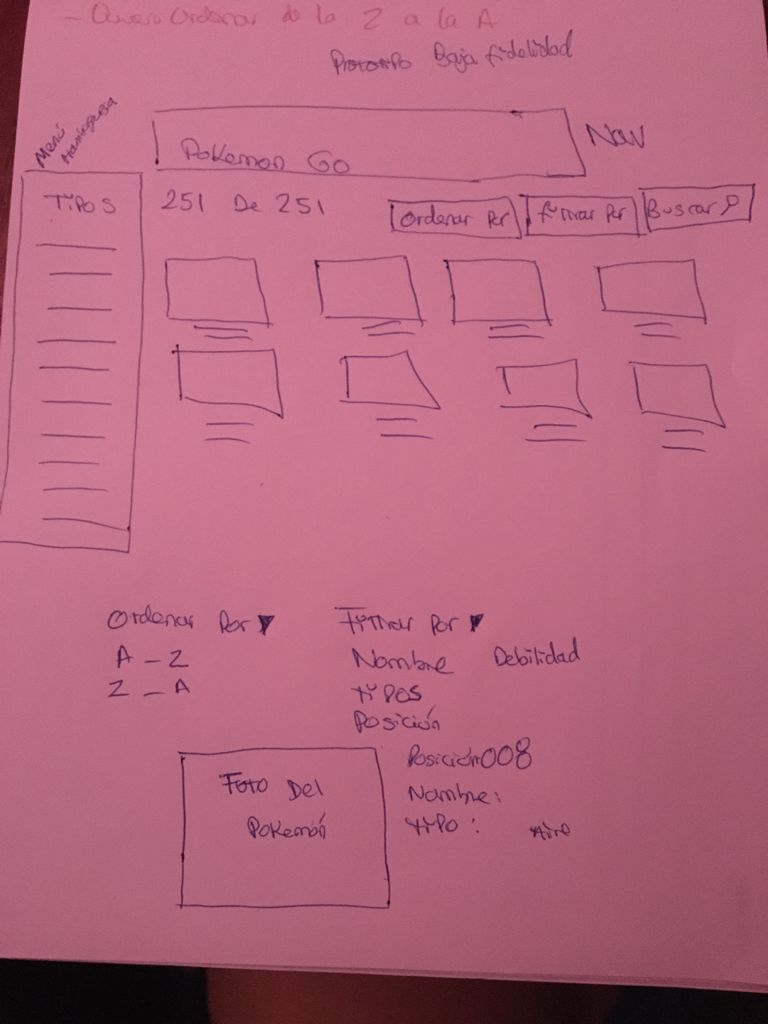 - Quiero Ordenar de la Z a la A
Prototipo Baja fidelidad
Menú
Hamburguesa
Pokemon Go
Nav
TiPOS
251 De 251
Ordenar Por
filtrar Por
Buscar
Ordenar Por
A - Z
Z - A
Filtrar Por
Nombre Debilidad
TiPOS
Posición
Foto Del
Pokemón
Posición 008
Nombre:
TiPO: Aire